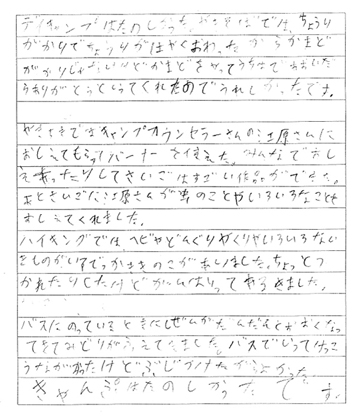 デイキャンプはたのしかった。やきそばでは、ちょうり
がかりでちょうりがはやくおわったからかまど
がかりじゃないけどかまどをやってうちわであおいだ
らありがとうといってくれたのでうれしかったです。
やきそきではキャンプカウンセラーさんの江原さんに
おしえてもらってバーナーを使えた。みんなで
しさいごはすごい作品ができた。
あとさいごに江原さんが のことやいろいろなことを
おしえてくれました。
ハイキングでは、ヘビやどんぐりやくりやいろいろない
きものがいすぎてっかまきのこがありました。ちょっとつ
かれたりしたけどがんばってあるきました。
バスにのっているときにしぜんがだんだんととおくなっ
てきてみどりがふえてきました。バスでいってけっこ
うながかったけどぶじついた よかった
きゃんぷはたのしかったです。